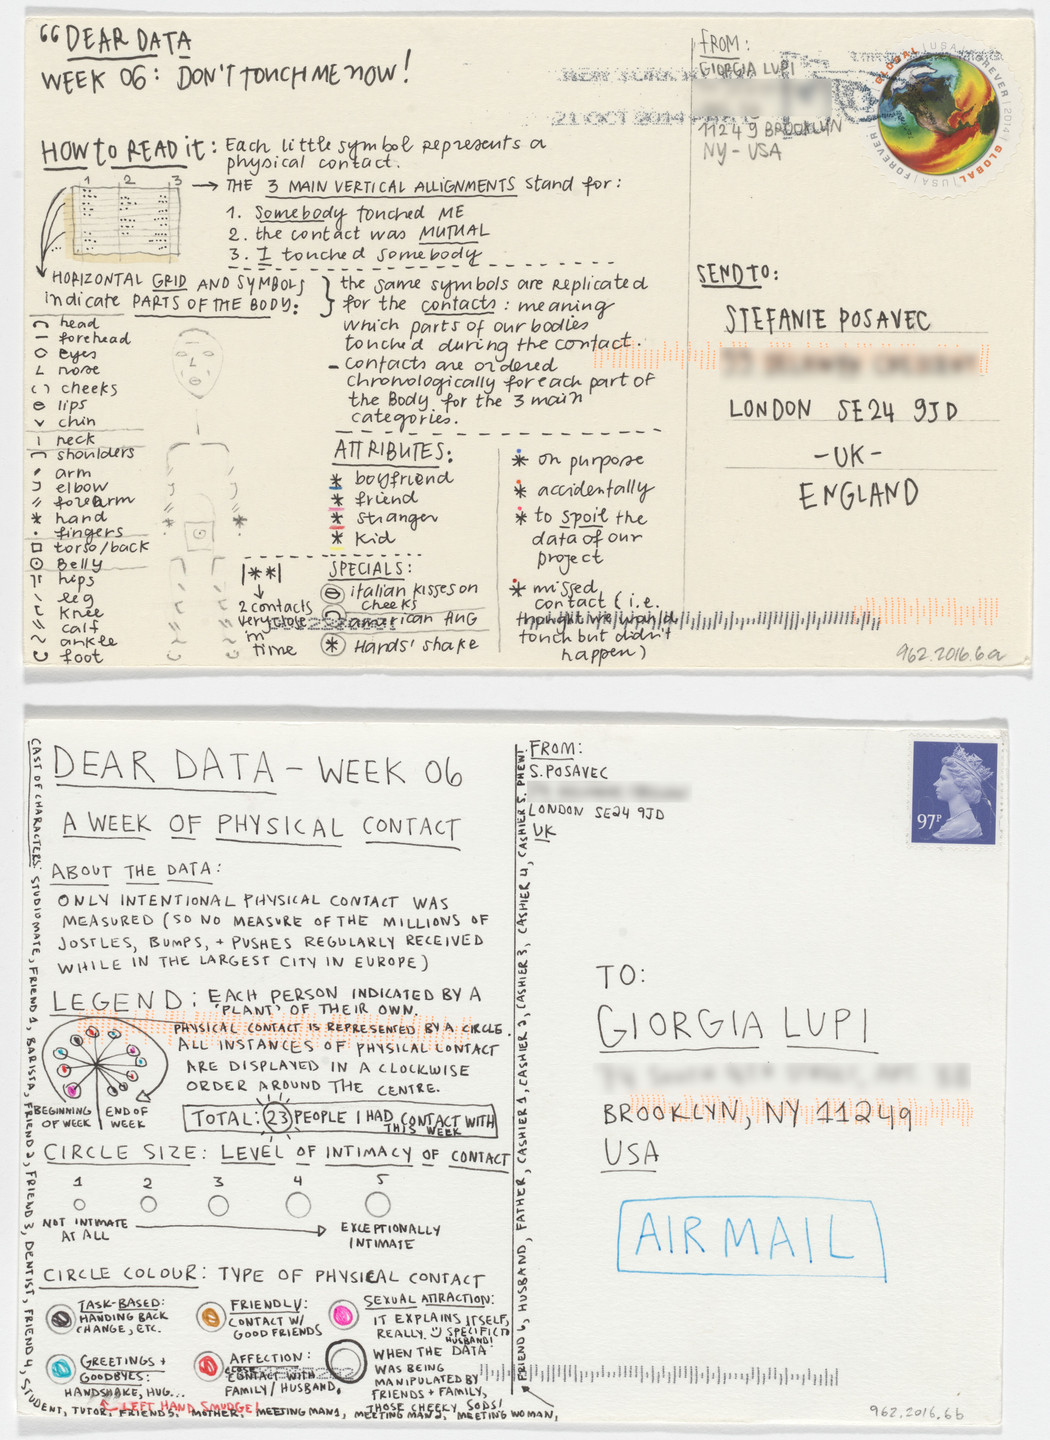 “DEAR DATA
WEEK 06: DON'T TOUCH ME NOW!
HOW to READ it: Each little symbol represents a
physical contact.
1 2 3
→ THE 3 MAIN VERTICAL ALLIGNMENTS stand for:
1. Somebody touched ME
2. the contact was MUTUAL
3. I touched somebody
HORIZONTAL GRID AND SYMBOLS
indicate PARTS OF THE BODY:
head
forehead
eyes
nose
cheeks
lips
chin
neck
shoulders
arm
elbow
forearm
hand
fingers
torso/back
Belly
hips
leg
knee
calf
ankle
foot
} the same symbols are replicated
for the contacts: meaning
which parts of our bodies
touched during the contact.
- Contacts are ordered
chronologically for each part of
the Body, for the 3 main
categories.
|**|
↓
2 contacts
very close
in
time
ATTRIBUTES:
* boyfriend
* friend
* stranger
* kid
SPECIALS:
italian kisses on
cheeks
american HUG
* Hands' shake
* on purpose
* accidentally
* to spoil the
data of our
project
* missed
contact (i.e.
thought we would
touch but didn't
happen)
FROM:
GIORGIA LUPI
11249 BROOKLYN
NY - USA
NEW YORK
21 OCT 2014
GLOBAL | USA | FOREVER | 2014 | GLOBAL | USA | FOREVER
SEND TO:
STEFANIE POSAVEC
LONDON SE24 9JD
- UK -
ENGLAND
962.2016.6a
DEAR DATA - WEEK 06
A WEEK OF PHYSICAL CONTACT
ABOUT THE DATA:
ONLY INTENTIONAL PHYSICAL CONTACT WAS
MEASURED (SO NO MEASURE OF THE MILLIONS OF
JOSTLES, BUMPS, + PUSHES REGULARLY RECEIVED
WHILE IN THE LARGEST CITY IN EUROPE)
LEGEND: EACH PERSON INDICATED BY A
'PLANT' OF THEIR OWN.
PHYSICAL CONTACT IS REPRESENTED BY A CIRCLE.
ALL INSTANCES OF PHYSICAL CONTACT
ARE DISPLAYED IN A CLOCKWISE
ORDER AROUND THE CENTRE.
BEGINNING
OF WEEK
END OF
WEEK
TOTAL: 23 PEOPLE I HAD CONTACT WITH
THIS WEEK
CIRCLE SIZE: LEVEL OF INTIMACY OF CONTACT
1 2 3 4 5
NOT INTIMATE
AT ALL
EXCEPTIONALLY
INTIMATE
CIRCLE COLOUR: TYPE OF PHYSICAL CONTACT
TASK-BASED:
HANDING BACK
CHANGE, ETC.
FRIENDLY:
CONTACT W/
GOOD FRIENDS
SEXUAL ATTRACTION:
IT EXPLAINS ITSELF,
REALLY. SPECIFIC TO
HUSBAND!
GREETINGS +
GOODBYES:
HANDSHAKE, HUG...
AFFECTION:
CLOSE
CONTACT WITH
FAMILY/HUSBAND.
WHEN THE DATA
WAS BEING
MANIPULATED BY
FRIENDS + FAMILY,
THOSE CHEEKY SODS!
LEFT HAND SMUDGE!
CAST OF CHARACTERS: STUDIOMATE, FRIEND 1, BARISTA, FRIEND 2, FRIEND 3, DENTIST, FRIEND 4,
STUDENT, TUTOR, FRIEND 5, MOTHER, MEETING MAN 1, MEETING MAN 2, MEETING WOMAN,
FRIEND 6, HUSBAND, FATHER, CASHIER 1, CASHIER 2, CASHIER 3, CASHIER 4, CASHIER 5. PHEW!
FROM:
S. POSAVEC
LONDON SE24 9JD
UK
97P
TO:
GIORGIA LUPI
BROOKLYN, NY 11249
USA
AIR MAIL
962.2016.6b